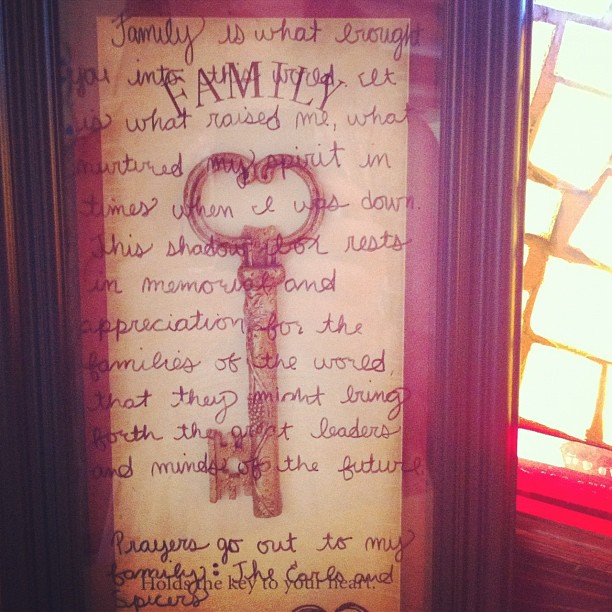 Family is what brought
you into this world. It
FAMILY
is what raised me, what
nurtured my spirit in
times when I was down.
This shadow box rests
in memorial and
appreciation for the
families of the world,
that they might bring
forth the great leaders
and minds of the future.
Prayers go out to my
family: The Earls and
Holds the key to your heart.
Spicers